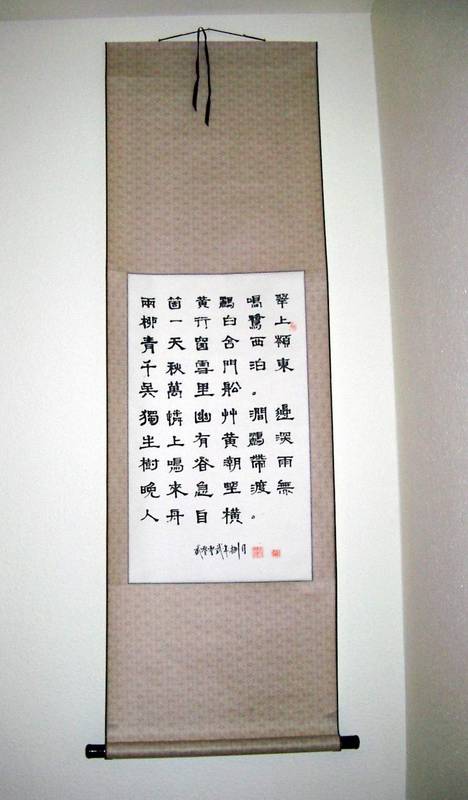 兩箇黃鸝鳴翠
柳一行白鷺上
青天窗含西嶺
千秋雪門泊東
吳萬里船。
獨憐幽艸澗邊
生上有黃鸝深
樹鳴春潮帶雨
晚來急埜渡無
人舟自橫。
貳年捌月